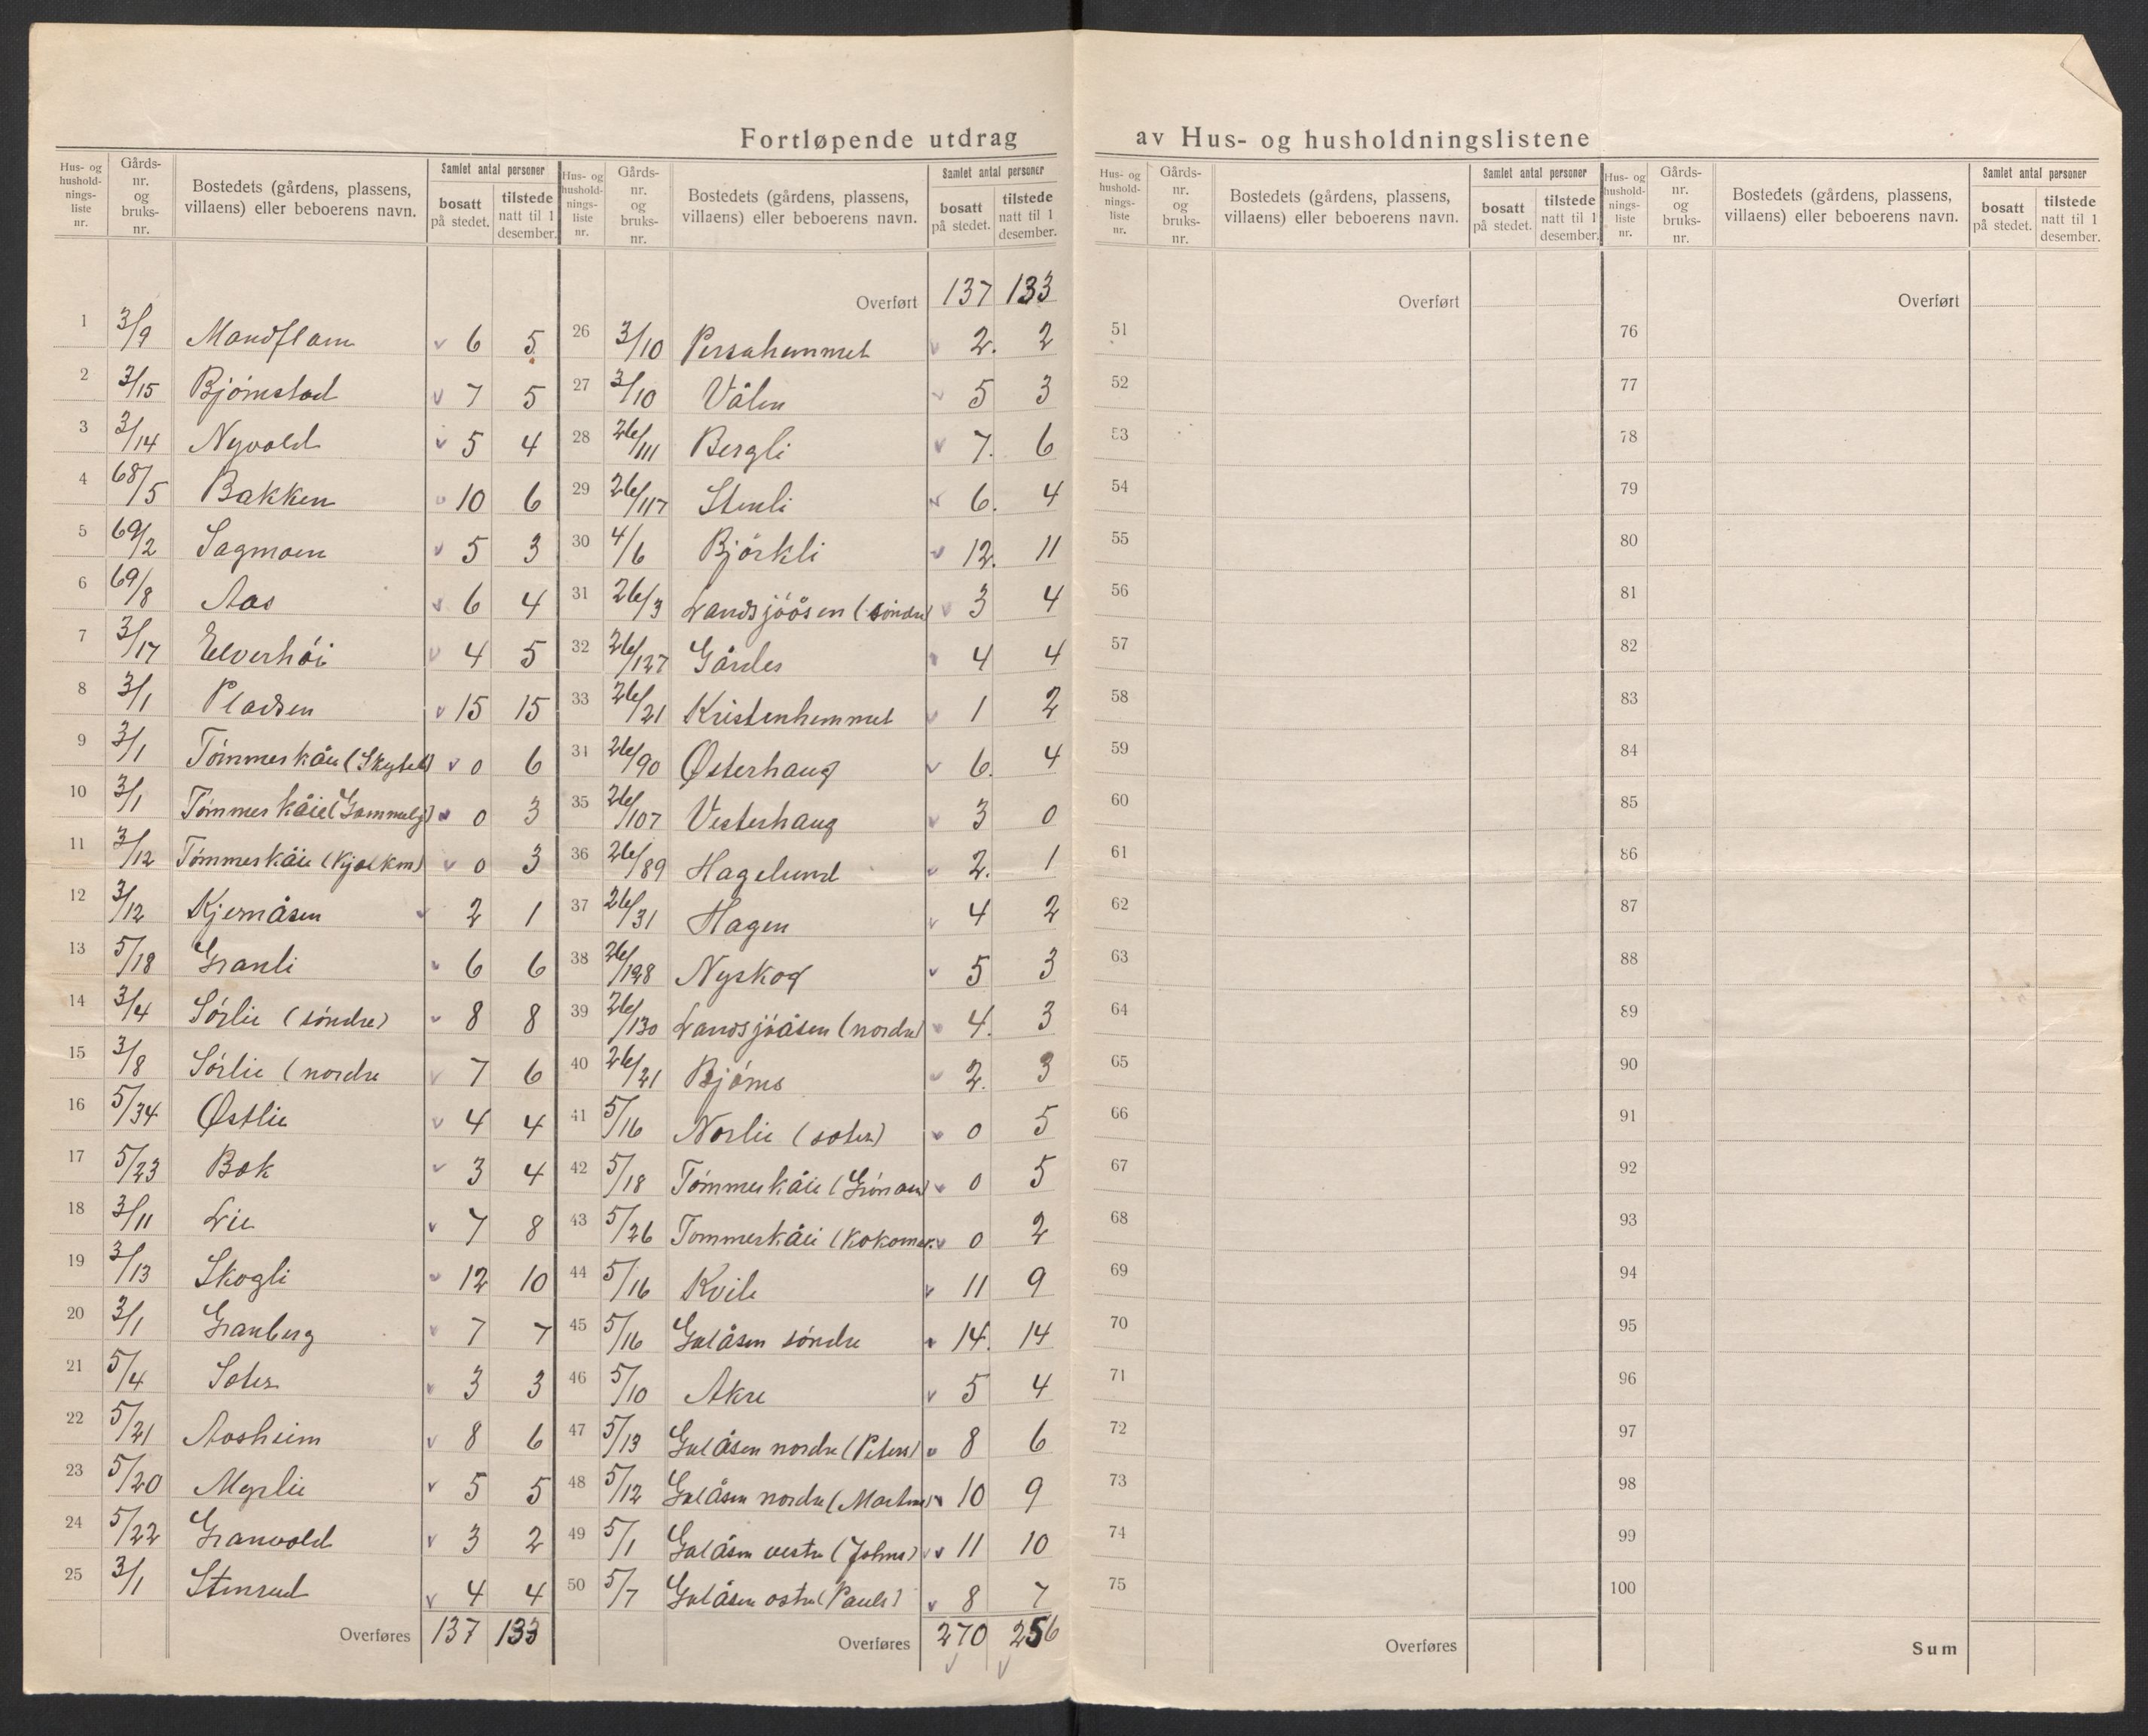 Fortløpende utdrag av Hus- og husholdningslistene
Hus- og husholdnings-liste nr. | Gårds-nr. og bruks-nr. | Bostedets (gårdens, plassens, villaens) eller beboerens navn. | Samlet antal personer bosatt på stedet. | tilstede natt til 1 desember.
1 3/9 Mandflam v 6 5
2 3/15 Bjørnstad v 7 5
3 3/14 Nyvold v 5 4
4 68/5 Bakken v 10 6
5 69/2 Sagmoen v 5 3
6 69/8 Aas v 6 4
7 3/17 Elverhói v 4 5
8 3/1 Pladsen v 15 15
9 3/1 Tómmerkåie v 0 6
10 3/1 Tómmerkåie v 0 3
11 3/12 Tómmerkåie v 0 3
12 3/12 Kjernåsen v 2 1
13 5/18 Granli v 6 6
14 3/4 Sórlie (sóndre) v 8 8
15 3/8 Sórlie (nordre v 7 6
16 5/34 Østlie v 4 4
17 5/23 Bak v 3 4
18 3/11 Lie v 7 8
19 3/13 Skogli v 12 10
20 3/1 Granberg v 7 7
21 5/4 Sater v 3 3
22 5/21 Aasheim v 8 6
23 5/20 Myrlie v 5 5
24 5/22 Granvold v 3 2
25 3/1 Stenrud v 4 4
Overføres 137 133
Hus- og husholdnings-liste nr. | Gårds-nr. og bruks-nr. | Bostedets (gårdens, plassens, villaens) eller beboerens navn. | Samlet antal personer bosatt på stedet. | tilstede natt til 1 desember.
Overført 137 133
26 3/10 Persahemmet v 2. 2
27 3/10 Vålen v 5 3
28 26/111 Bergli v 7. 6
29 26/117 Stenli v 6. 4
30 4/6 Bjórkli v 12. 11
31 26/3 Landsjóåsen (sóndre) v 3 4
32 26/127 Gårder v 4 4
33 26/21 Kristenhemmet v 1 2
34 26/90 Østerhaug v 6. 4
35 26/107 Vesterhaug v 3 0
36 26/89 Hagelund v 2. 1
37 26/31 Hagen v 4 2
38 26/128 Nyskog v 5 3
39 26/130 Landsjóåsen (nordre) v 4. 3
40 26/21 Bjórns v 2. 3
41 5/16 Norlie (sater) v 0 5
42 5/18 Tómmerkåie v 0 5
43 5/26 Tommerkåie v 0 2
44 5/16 Kvile v 11 9
45 5/16 Galåsen sóndre v 14. 14
46 5/10 Akre v 5 4
47 5/13 Galåsen nordre (Peters) v 8 6
48 5/12 Galåsen nordre v 10 9
49 5/1 Galåsen vestre (Johns) v v 11 10
50 5/7 Galåsen ostre (Pauls) v 8 7
Overføres 270 256
v v
Hus- og husholdnings-liste nr. | Gårds-nr. og bruks-nr. | Bostedets (gårdens, plassens, villaens) eller beboerens navn. | Samlet antal personer bosatt på stedet. | tilstede natt til 1 desember.
Overført
51
52
53
54
55
56
57
58
59
60
61
62
63
64
65
66
67
68
69
70
71
72
73
74
75
Overføres
Hus- og husholdnings-liste nr. | Gårds-nr. og bruks-nr. | Bostedets (gårdens, plassens, villaens) eller beboerens navn. | Samlet antal personer bosatt på stedet. | tilstede natt til 1 desember.
Overført
76
77
78
79
80
81
82
83
84
85
86
87
88
89
90
91
92
93
94
95
96
97
98
99
100
Sum